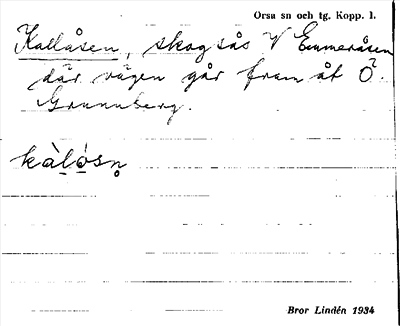 Orsa sn och tg. Kopp. l.
Kallåsen, skogsås V Emmeråsen
där vägen går fram åt Ö.
Grunnberg.
kàlósn̥
Bror Lindén 1934